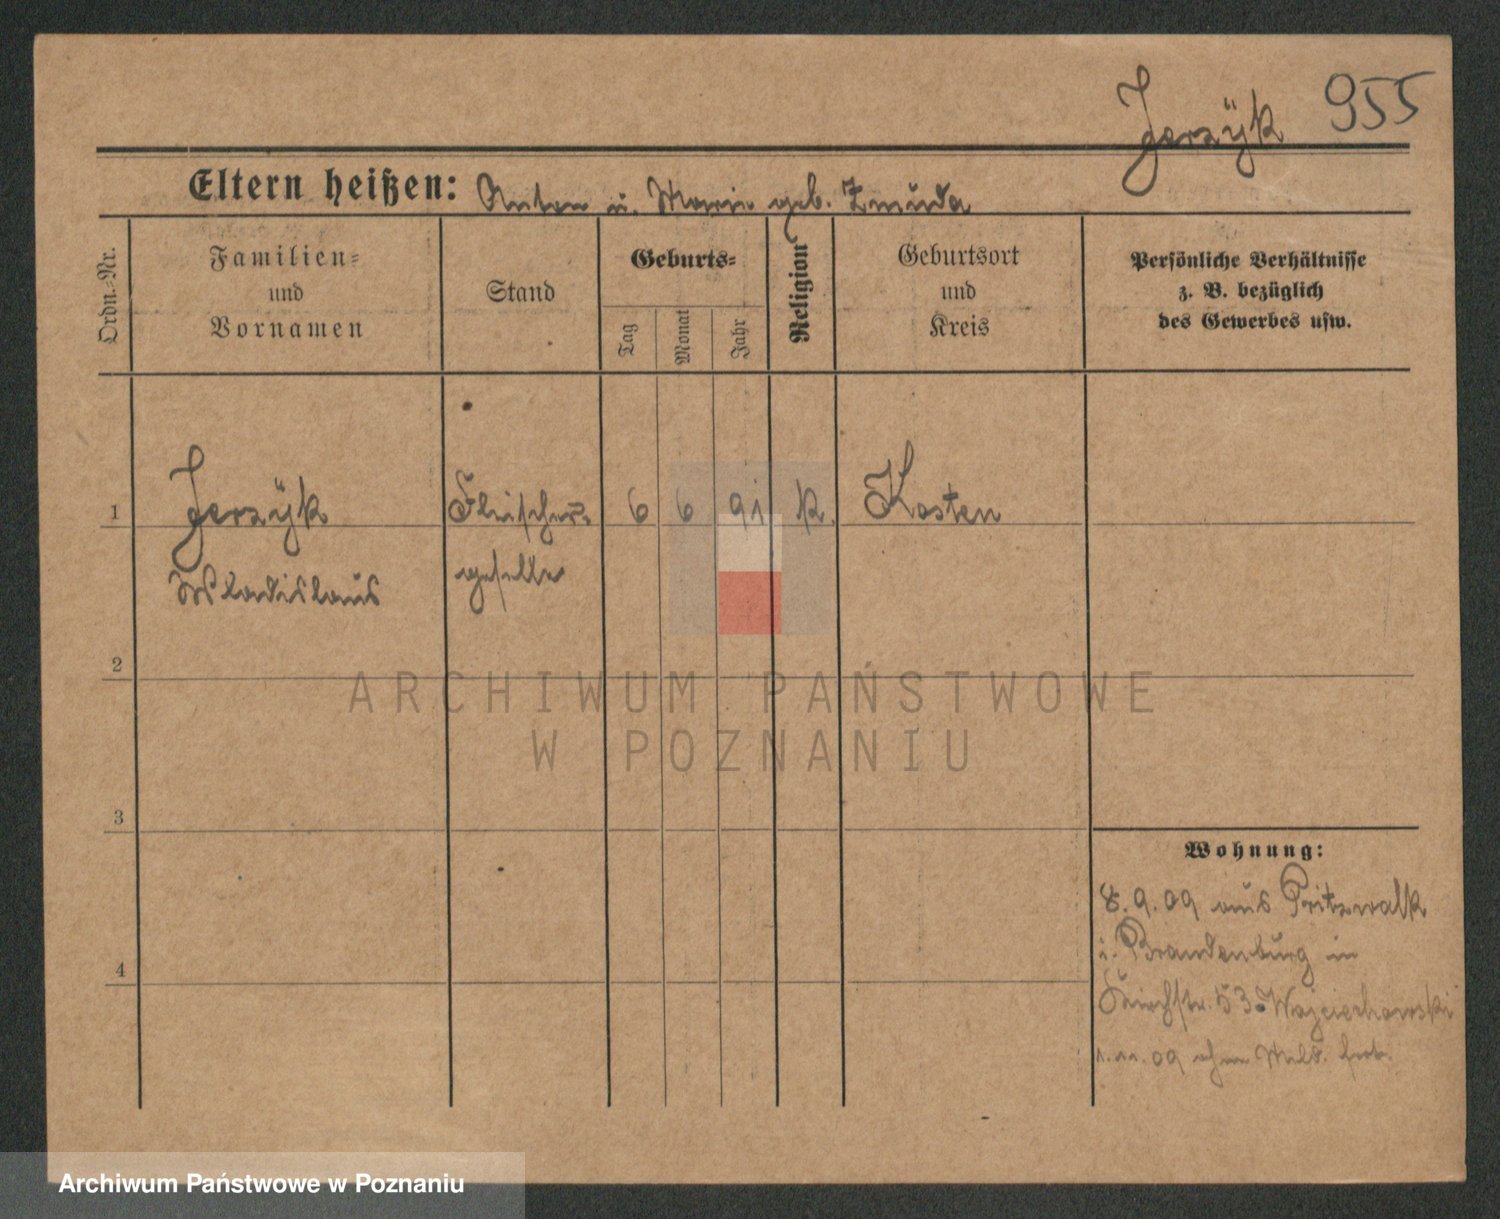 Jerzÿk 955
Eltern heißen: Anton u. Marie geb. Zmuda
Ordn.-Nr.
Familien-
und
Vornamen
Stand
Geburts-
Tag
Monat
Jahr
Religion
Geburtsort
und
Kreis
Persönliche Verhältnisse
z. B. bezüglich
des Gewerbes usw.
1 Jerzÿk Fleischer- 6 6 91 k. Kosten
Wladislaus geselle
2
ARCHIWUM PAŃSTWOWE
W POZNANIU
3
Wohnung:
8.9.09 aus Pritzwalk
4
i. Brandenburg in
Kirchstr. 53. Wojciechowski
1.11.09 ohne Meld.
Archiwum Państwowe w Poznaniu